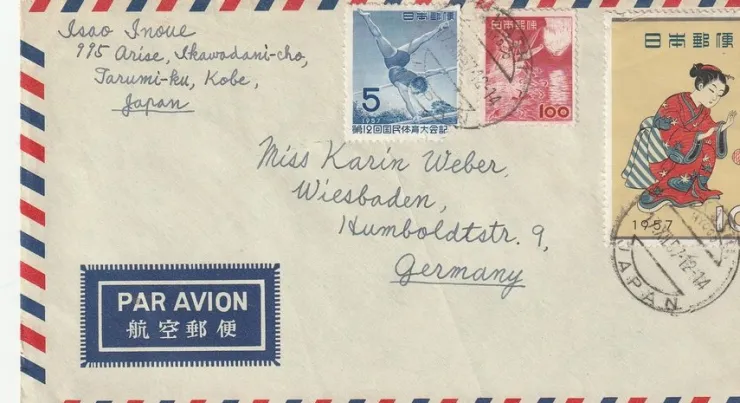 Isao Inoue
995 Arise, Ikawadani-cho,
Tarumi-ku, Kobe,
Japan
日本郵便
5
1957
第12回国民体育大会記
日本郵便
100
日本郵便
1957
10
JAPAN
Miss Karin Weber,
Wiesbaden,
Humboldtstr. 9,
Germany
PAR AVION
航空郵便